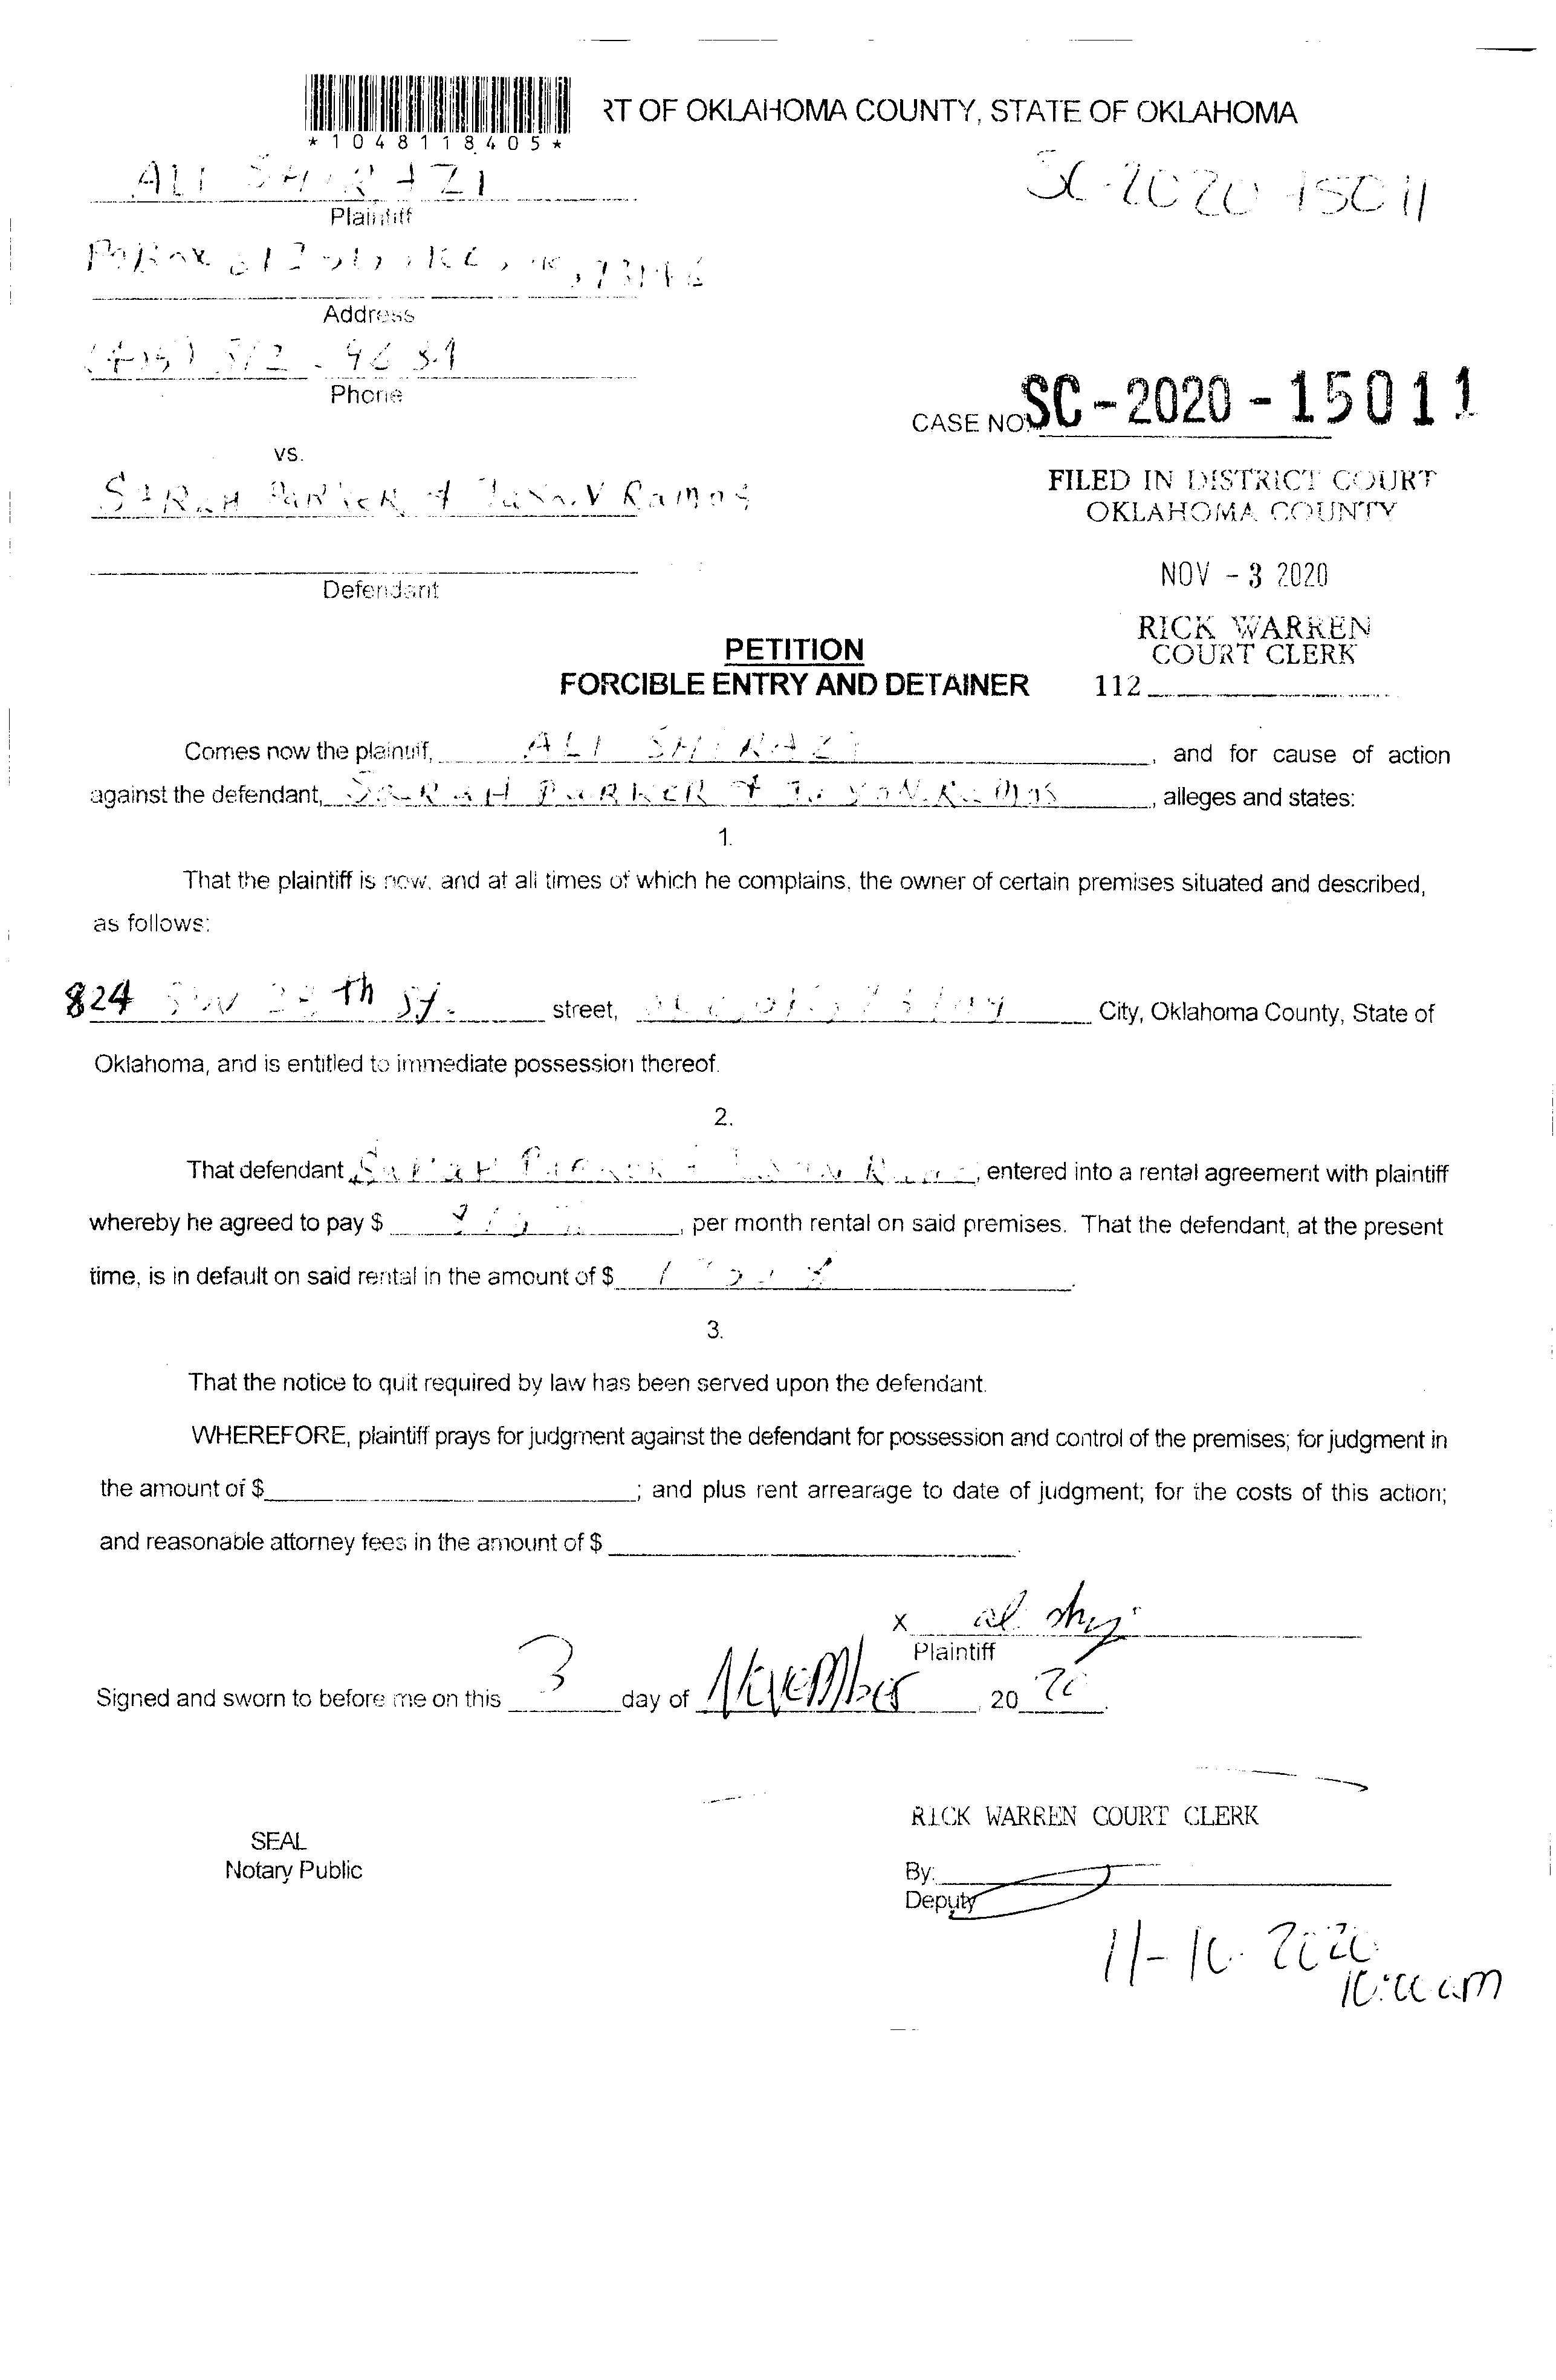 RT OF OKLAHOMA COUNTY, STATE OF OKLAHOMA
*1048118405*
ALI SHIRAZI
SC-2020-15011
Plaintiff
Address
Phone
CASE NO. SC-2020-15011
vs.
SARAH PARKER & Ramos
FILED IN DISTRICT COURT
OKLAHOMA COUNTY
Defendant
NOV - 3 2020
RICK WARREN
COURT CLERK
PETITION
FORCIBLE ENTRY AND DETAINER
112
Comes now the plaintiff, ALI SHIRAZI, and for cause of action
against the defendant, SARAH PARKER & RAMOS, alleges and states:
1.
That the plaintiff is now, and at all times of which he complains, the owner of certain premises situated and described,
as follows:
824 SW th St. street, City, Oklahoma County, State of
Oklahoma, and is entitled to immediate possession thereof.
2.
That defendant SARAH PARKER, entered into a rental agreement with plaintiff
whereby he agreed to pay $, per month rental on said premises. That the defendant, at the present
time, is in default on said rental in the amount of $.
3.
That the notice to quit required by law has been served upon the defendant.
WHEREFORE, plaintiff prays for judgment against the defendant for possession and control of the premises; for judgment in
the amount of $; and plus rent arrearage to date of judgment; for the costs of this action;
and reasonable attorney fees in the amount of $.
X
Plaintiff
Signed and sworn to before me on this 3 day of November, 20 20.
RICK WARREN COURT CLERK
SEAL
Notary Public
By:
Deputy
11-10-2020
10:00 am